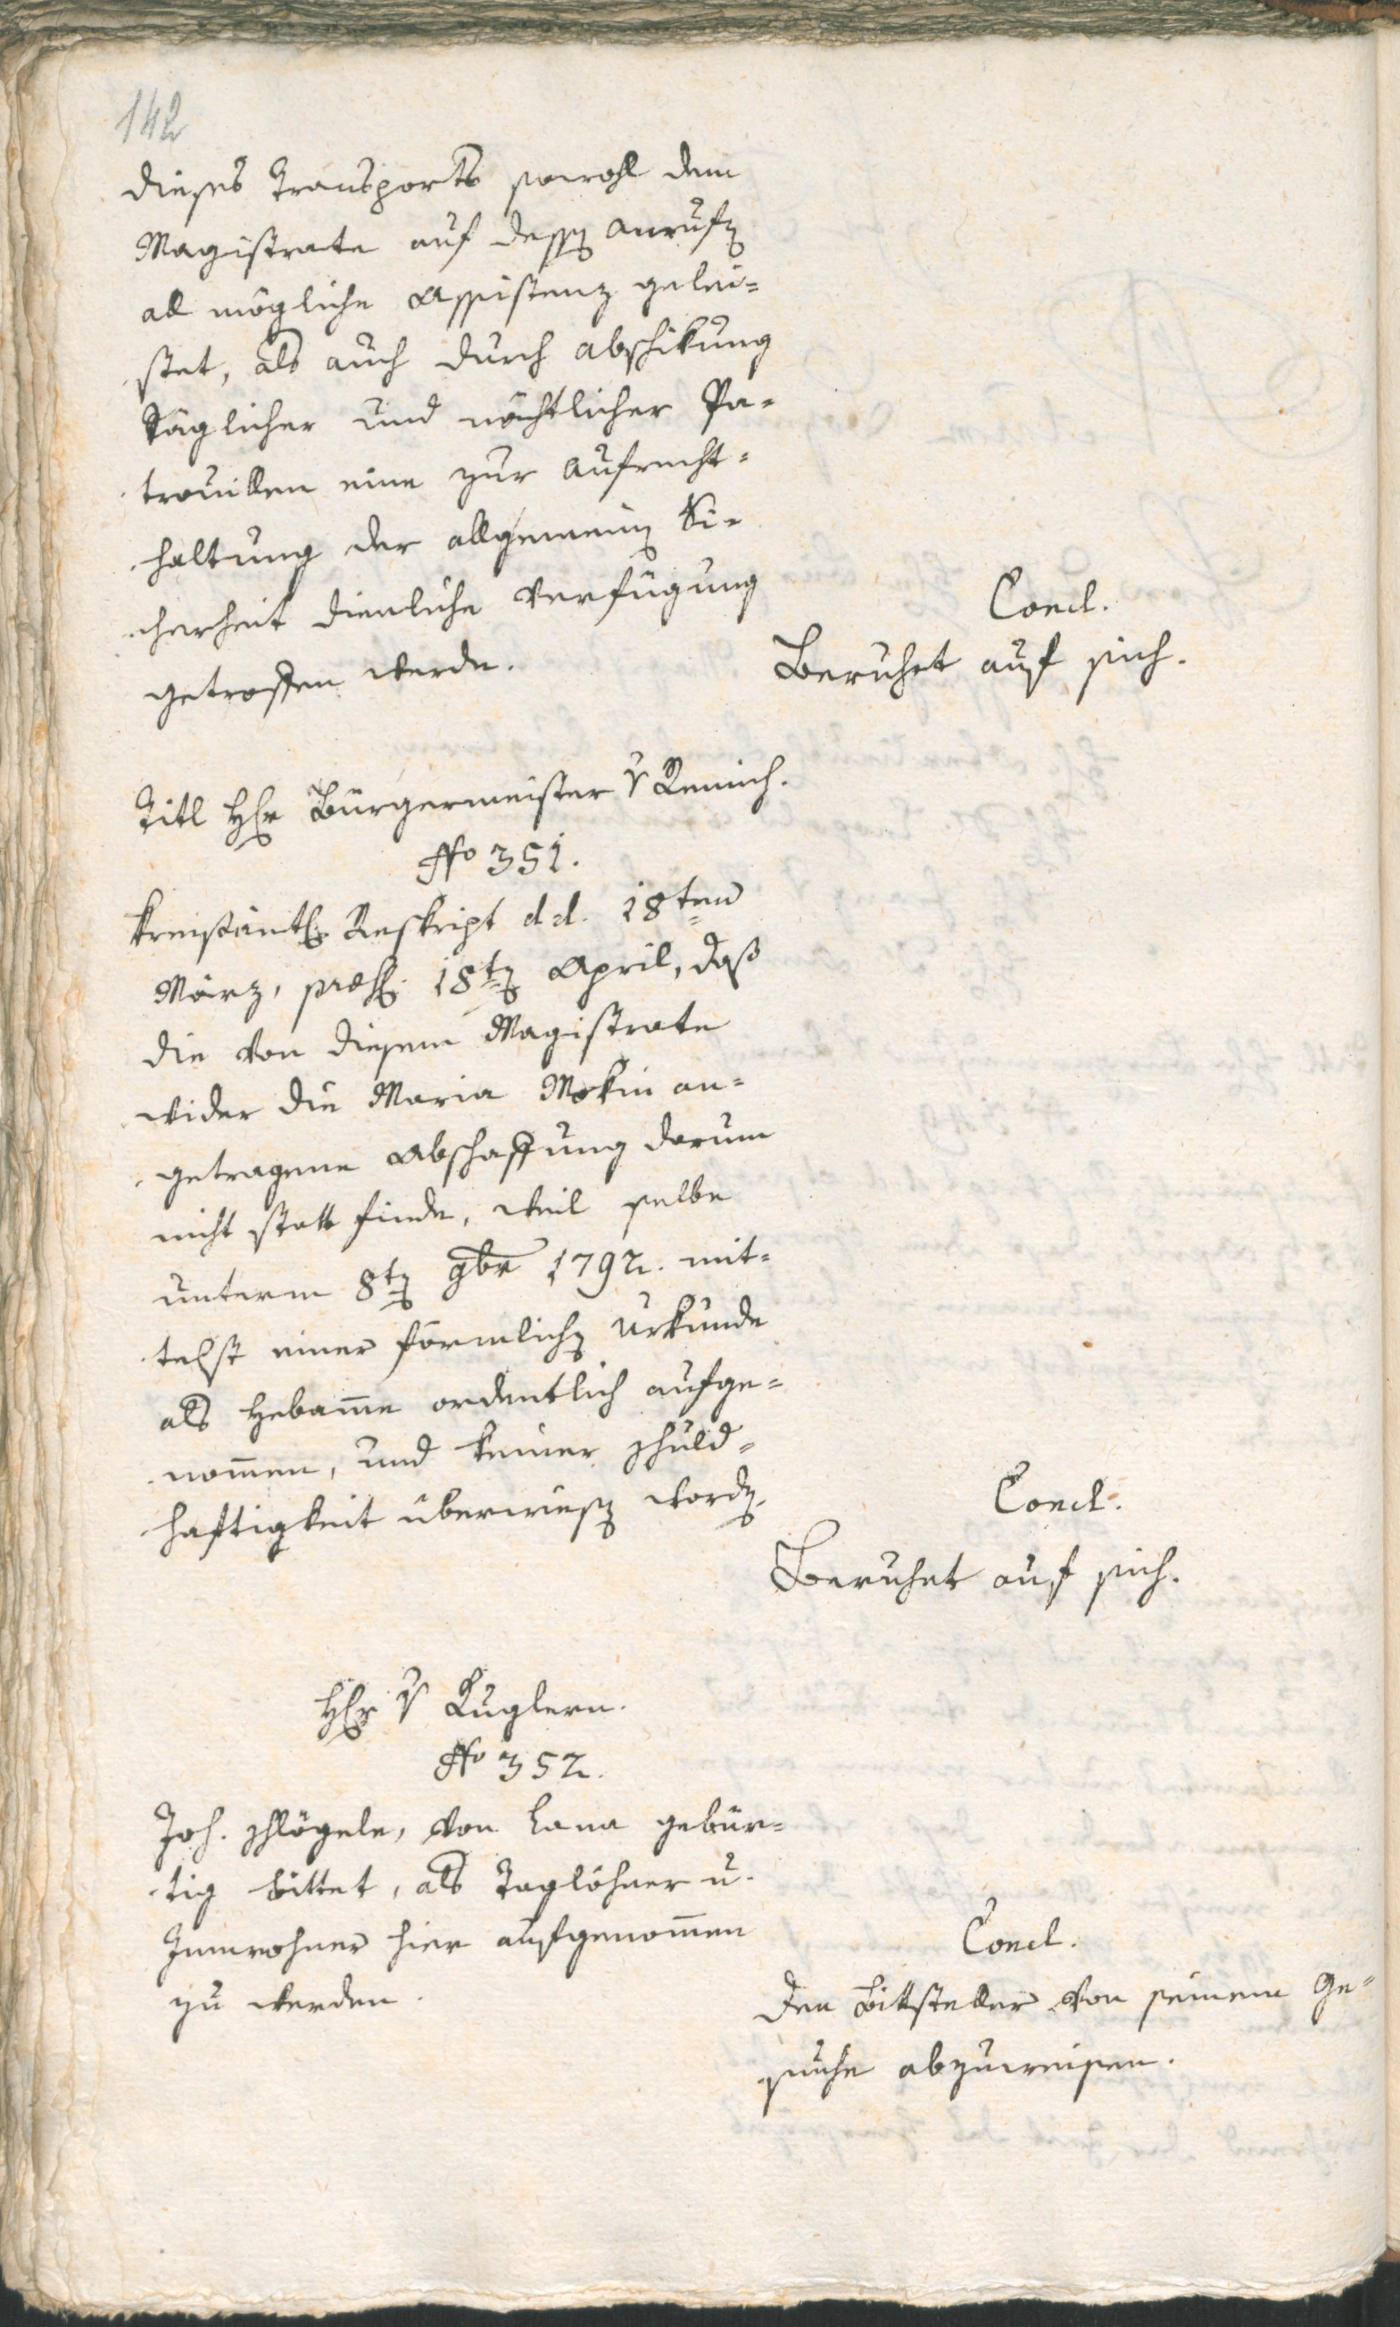 142
dieses Transports sowohl dem
Magistrate auf dessen anrufen
all mögliche Assistenz gelei=
stet, als auch durch abschikung
täglicher und nächtlicher Pa=
trouillen eine zur aufrecht=
haltung der allgemeinen Si=
cherheit dienliche Verfügung
getroffen werde.
Concl.
Beruhet auf sich.
Titl Herr Bürgermeister v Remich.
No 351.
Kreisämtl. Reskript dd. 18ten
März, præs. 18ten April, daß
die von diesem Magistrate
wider die Maria Mokin an=
getragene Abschaffung darum
nicht statt finde, weil selbe
unterm 8ten 9br 1792. mit=
telst einer förmlichen Urkunde
als Hebam̄e ordentlich aufge=
nom̄en, und keiner schuld=
haftigkeit überwiesen worden.
Concl.
Beruhet auf sich.
Herr v Kuglern.
No 352.
Joh. schlögele, von Lana gebür=
tig bittet, als Taglöhner u.
Innwohner hier aufgenom̄en
zu werden.
Concl.
Den Bittsteller von seinem Ge=
suche abzuweisen.